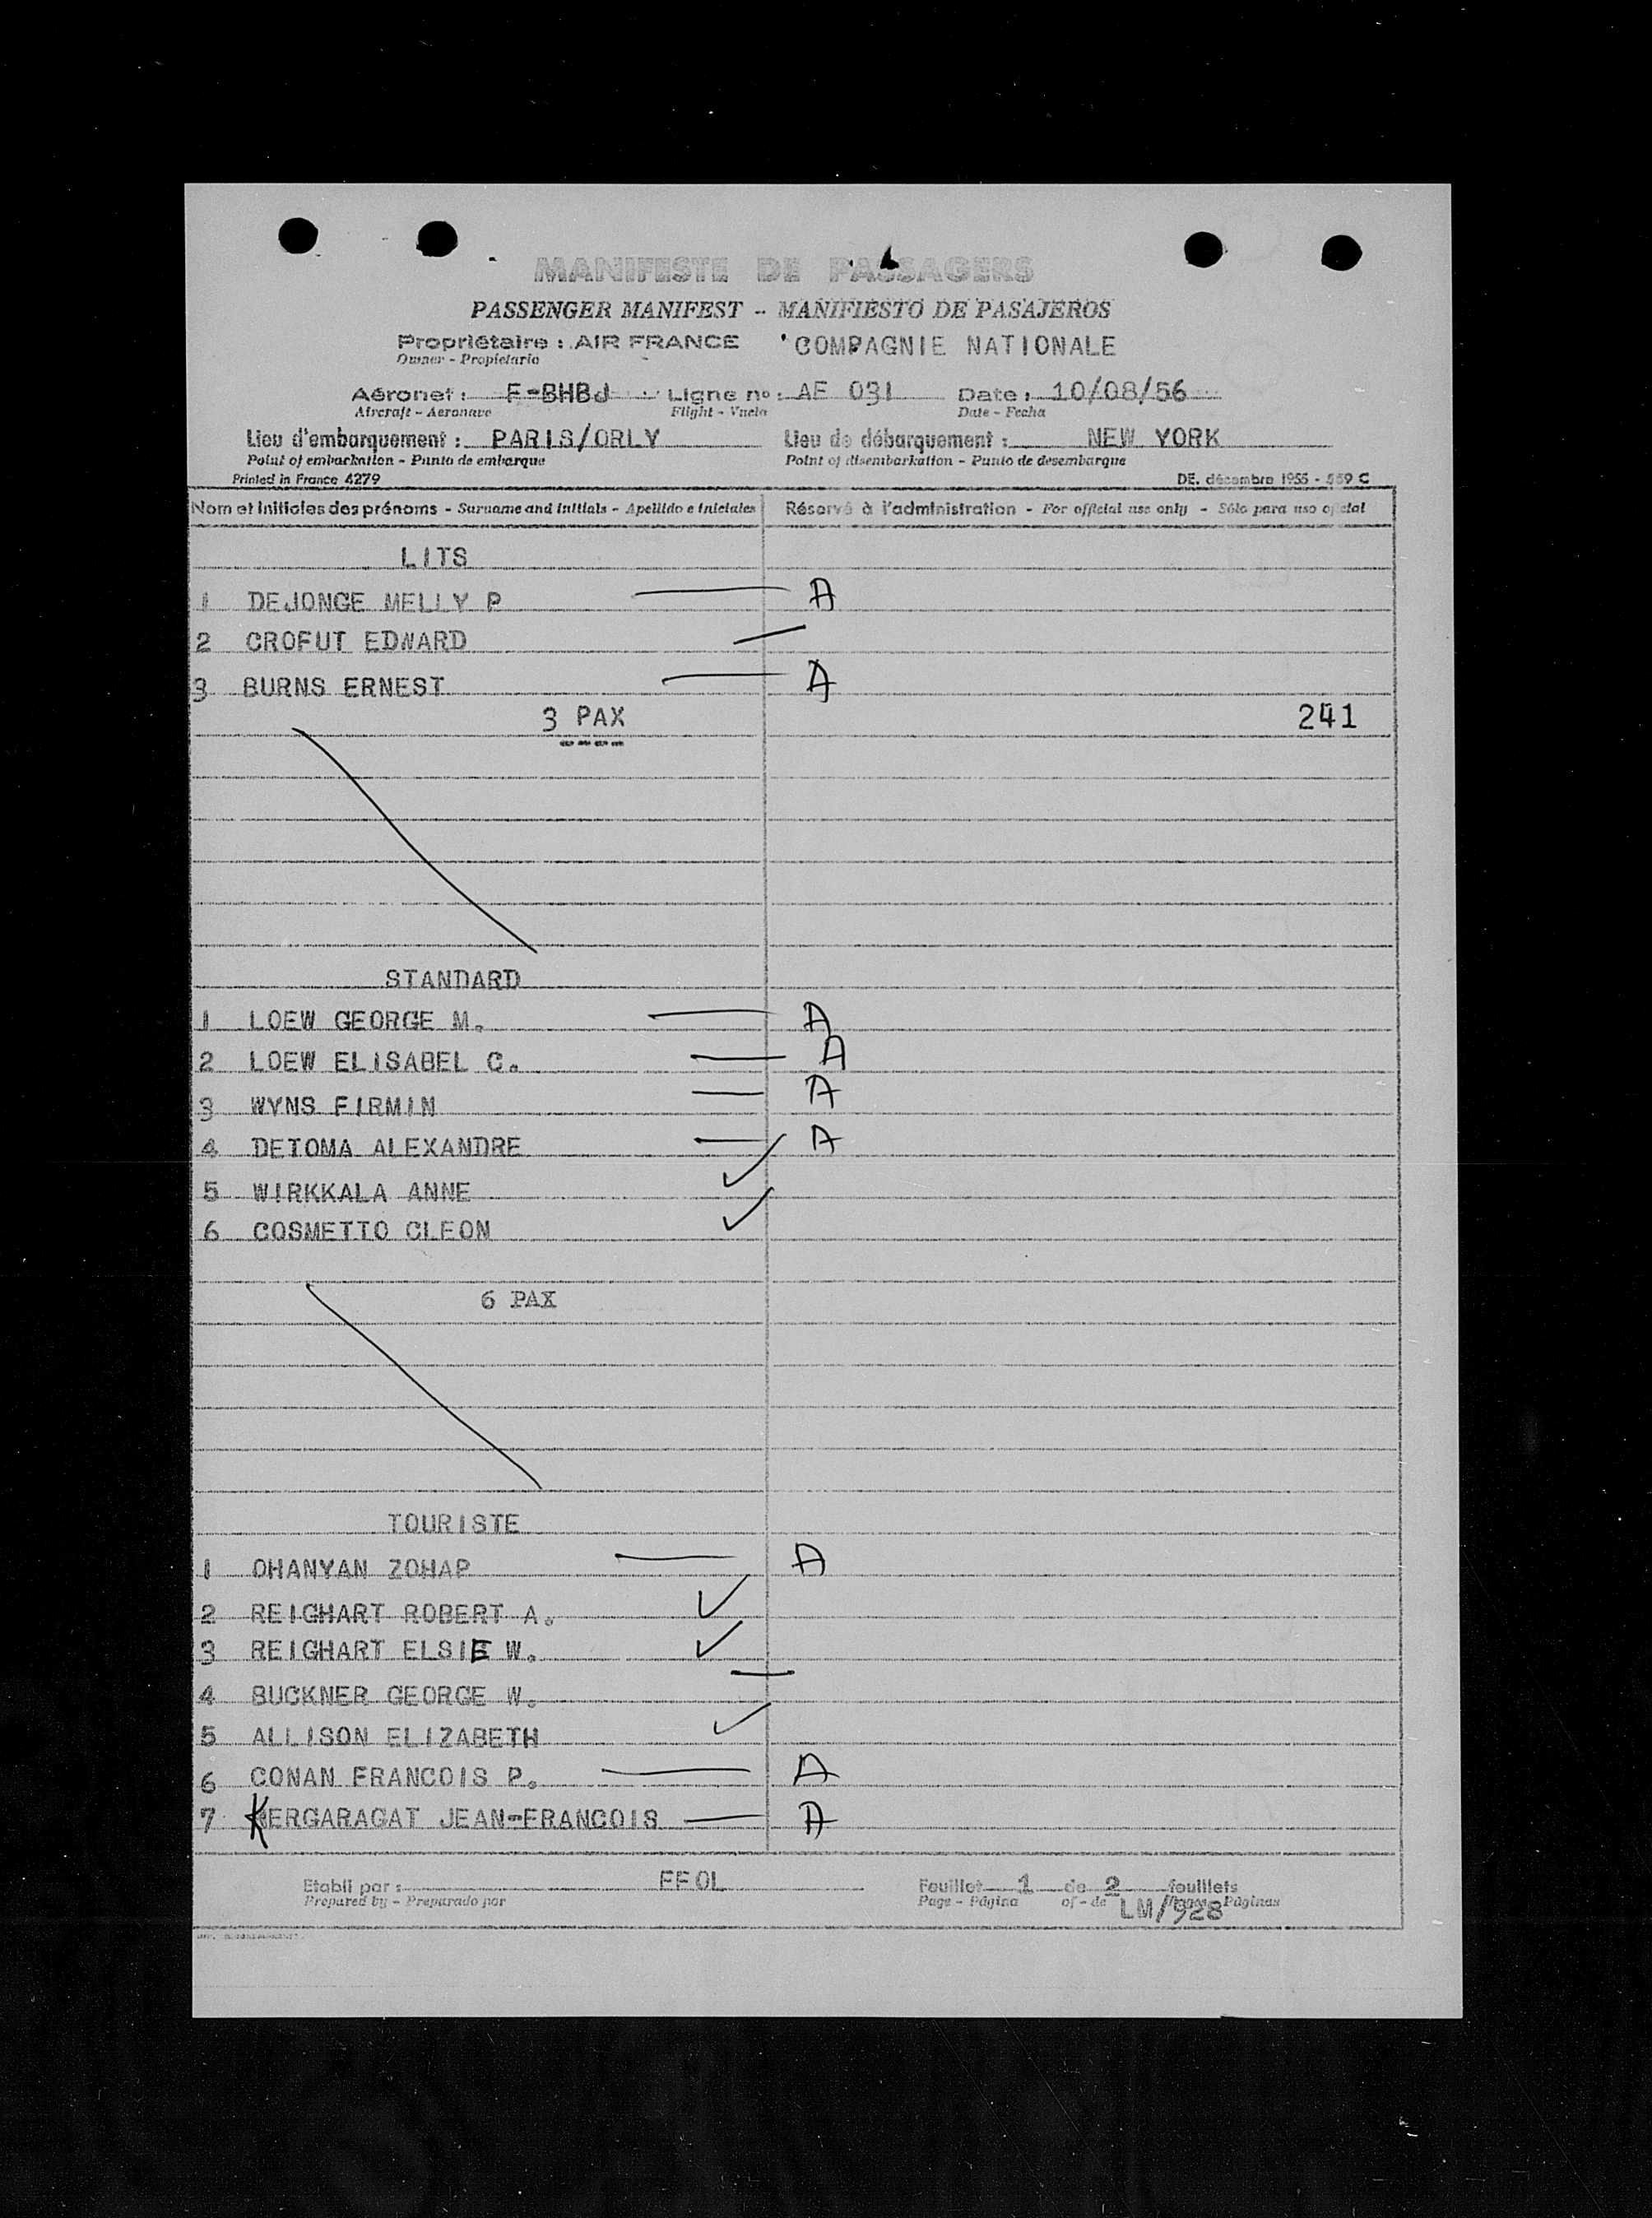 MANIFESTE DE PASSAGERS
PASSENGER MANIFEST - MANIFIESTO DE PASAJEROS
Propriétaire : AIR FRANCE COMPAGNIE NATIONALE
Owner - Propietario
Aéronef : F-BHBJ Ligne no : AF 031 Date : 10/08/56
Aircraft - Aeronave Flight - Vuelo Date - Fecha
Lieu d'embarquement : PARIS/ORLY Lieu de débarquement : NEW YORK
Point of embarkation - Punto de embarque Point of disembarkation - Punto de desembarque
Printed in France 4279 DE. décembre 1955 - 559 C
Nom et initiales des prénoms - Surname and initials - Apellido e iniciales Réservé à l'administration - For official use only - Sólo para uso oficial
LITS
1 DEJONGE MELLY P A
2 CROFUT EDWARD
3 BURNS ERNEST A
3 PAX 241
STANDARD
1 LOEW GEORGE M. A
2 LOEW ELISABEL C. A
3 WYNS FIRMIN A
4 DETOMA ALEXANDRE A
5 WIRKKALA ANNE
6 COSMETTO CLEON
6 PAX
TOURISTE
1 OHANYAN ZOHAP A
2 REIGHART ROBERT A.
3 REIGHART ELSIE W.
4 BUCKNER GEORGE W.
5 ALLISON ELIZABETH
6 CONAN FRANCOIS P. A
7 KERGARAGAT JEAN-FRANCOIS A
Etabli par : FFOL Feuillet 1 de 2 feuillets
Prepared by - Preparado por Page - Página of - de Páginas
LM/928